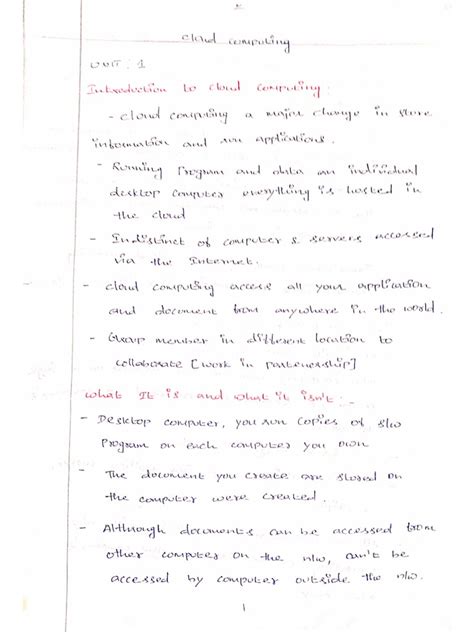 Cloud computing
UNIT : 1
Introduction to cloud computing :
- cloud computing a major change in store
information and run applications.
- Running Program and data an individual
desktop computer everything is hosted in
the cloud
- Indistinct of computer & servers accessed
via the Internet.
- cloud computing access all your application
and document from anywhere in the world.
- Group member in different location to
collaborate [work in partenership]
what It is and what it isn't :-
- Desktop computer, you run copies of s/w
Program on each computer you own
- The document you create are stored on
the computer were created.
- Although documents can be accessed from
other computer on the n/w, can't be
accessed by computer outside the n/w.
1